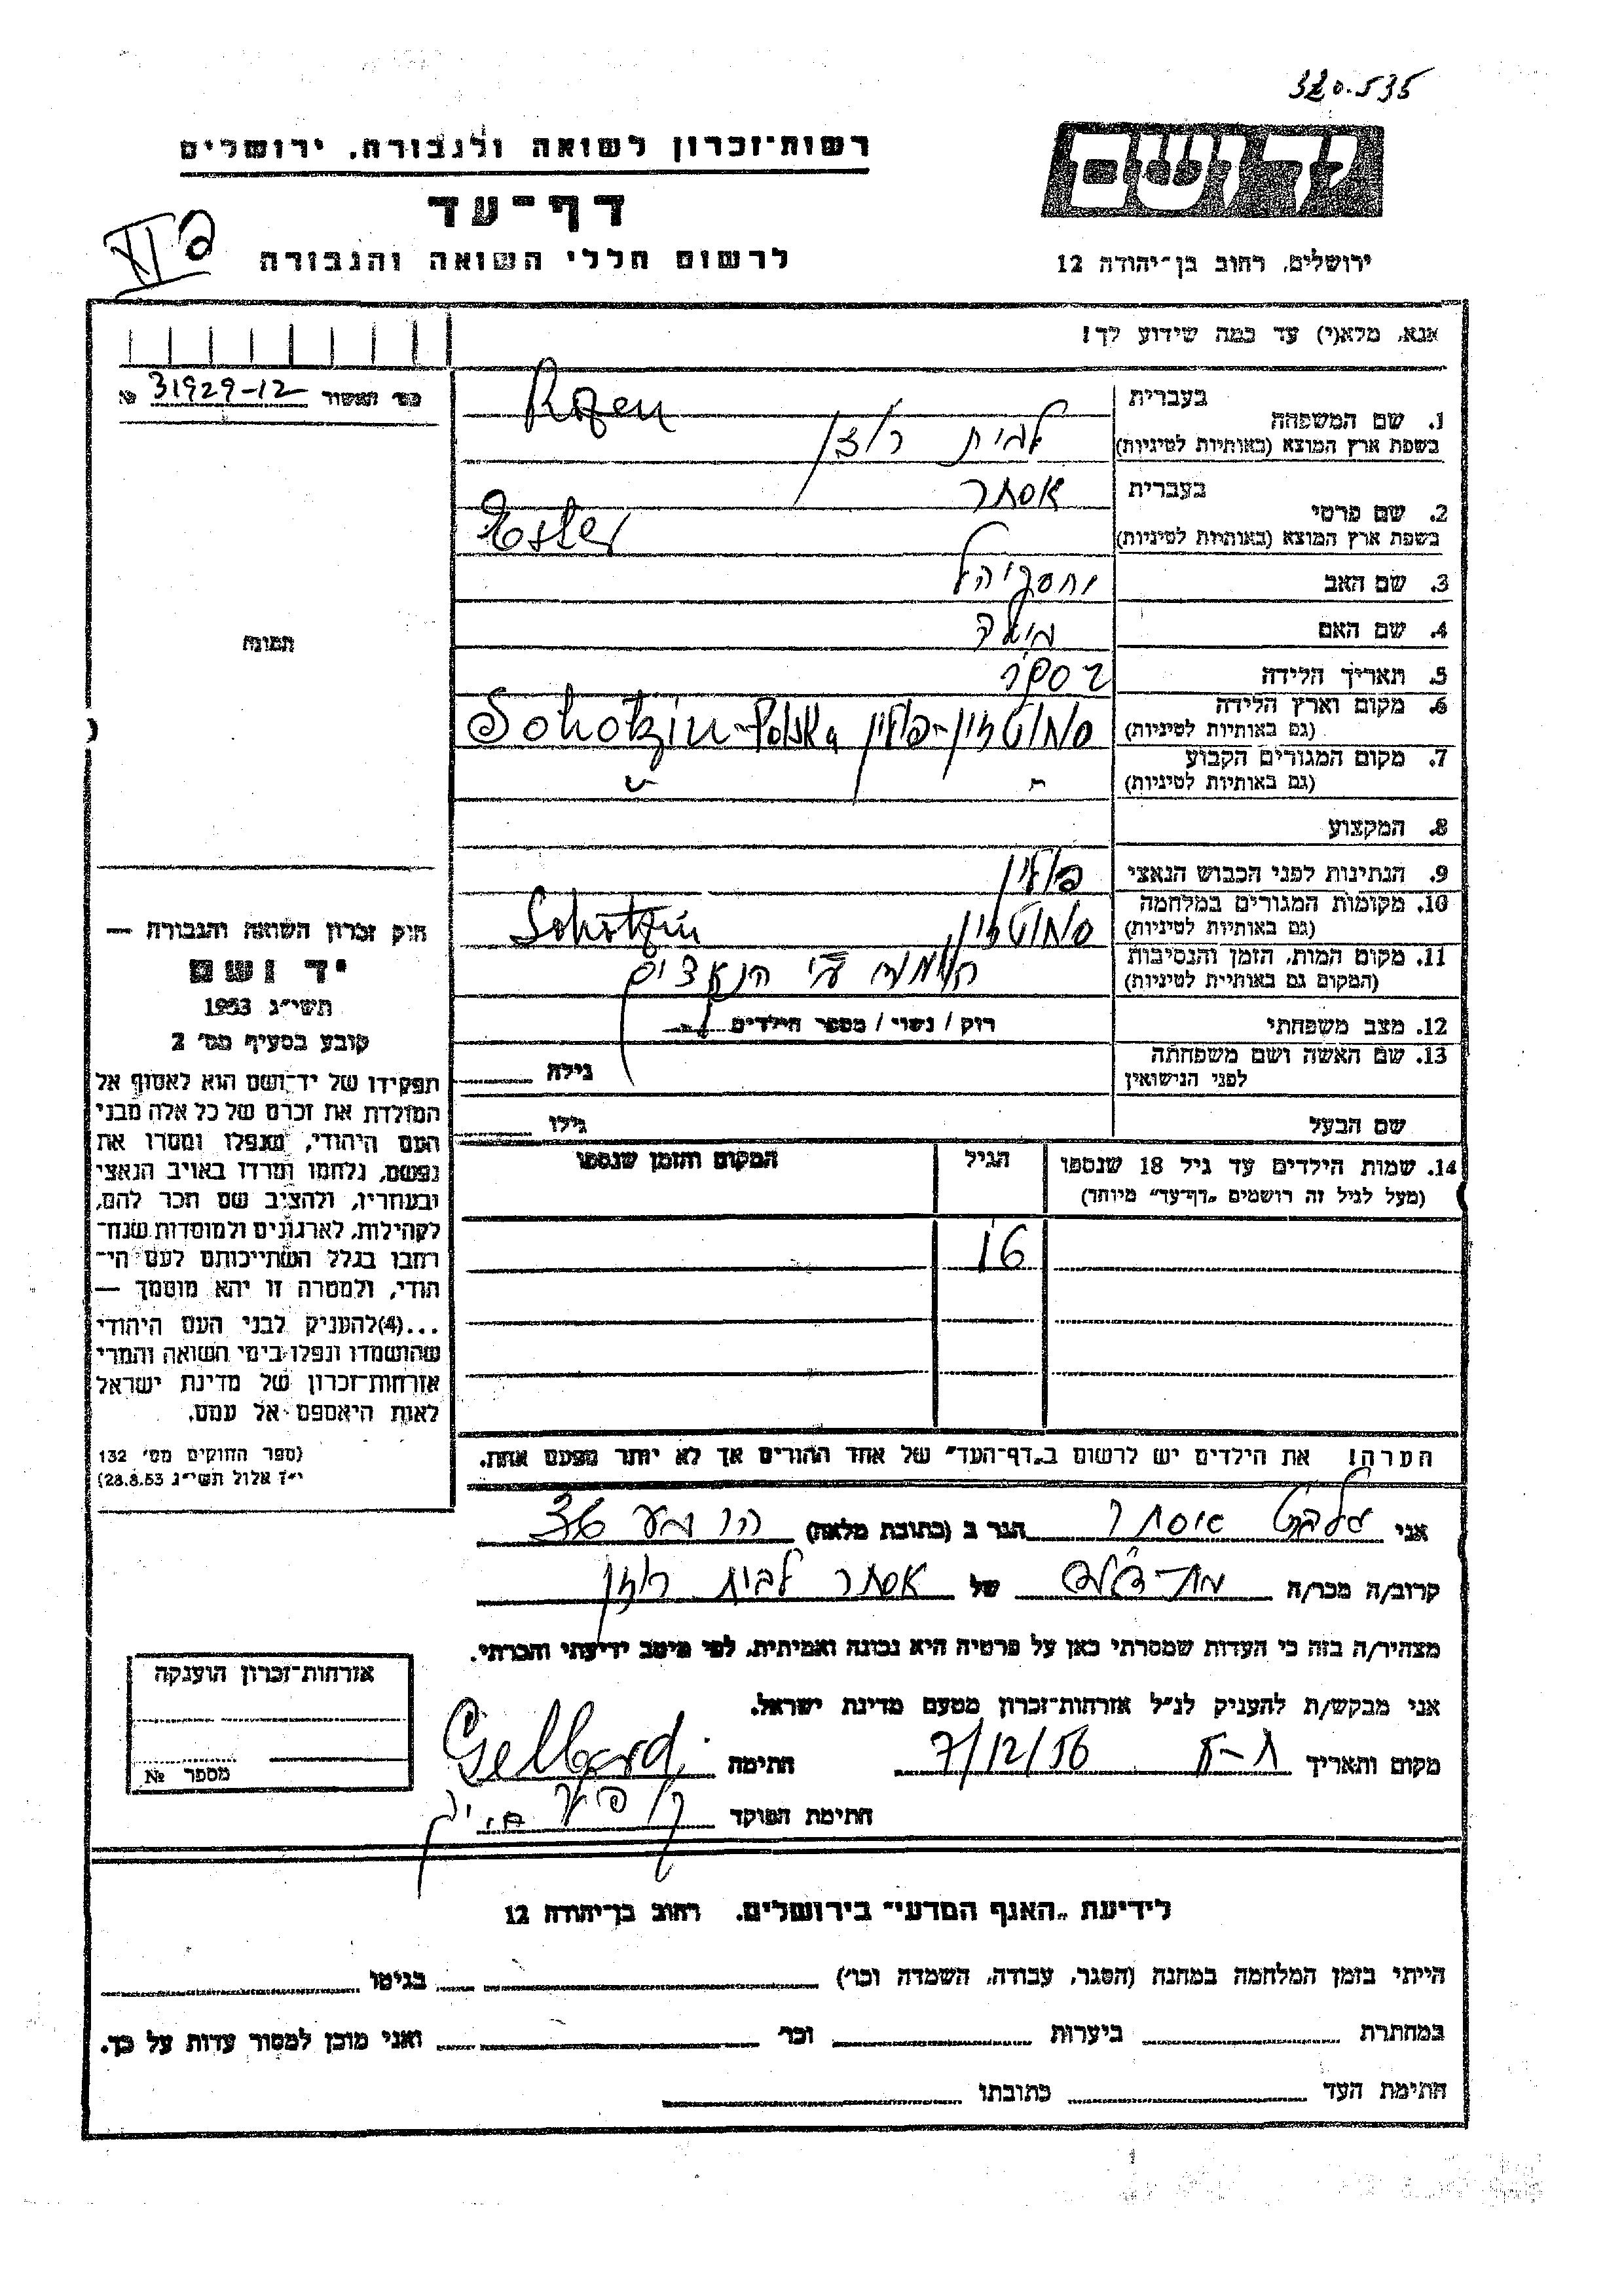 320.535
רשות־זכרון לשואה ולגבורה, ירושלים
יד ושם
דף־עד
לרשום חללי השואה והגבורה
ירושלים, רחוב בן־יהודה 12
אנא, מלא(י) עד כמה שידוע לך!
מס' האשור 31929-12 №
1. שם המשפחה
בעברית
Rozen
בשפת ארץ המוצא (באותיות לטיניות)
לבית רוזן
2. שם פרטי
בעברית
אסתר
בשפת ארץ המוצא (באותיות לטיניות)
Ester
3. שם האב
4. שם האם
5. תאריך הלידה
6. מקום וארץ הלידה
(גם באותיות לטיניות)
סוחוטזין-פולין Sohotzin-Polska
7. מקום המגורים הקבוע
(גם באותיות לטיניות)
8. המקצוע
9. הנתינות לפני הכבוש הנאצי
פולין
10. מקומות המגורים במלחמה
(גם באותיות לטיניות)
סוחוטזין Sohotzin
11. מקום המות, הזמן והנסיבות
(המקום גם באותיות לטיניות)
ע"י הנאצים
12. מצב משפחתי
רוק / נשוי / מספר הילדים
13. שם האשה ושם משפחתה
לפני הנישואין
גילה
שם הבעל
גילו
14. שמות הילדים עד גיל 18 שנספו
(מעל לגיל זה רושמים „דף־עד" מיוחד)
הגיל
המקום והזמן שנספו
16
הערה! את הילדים יש לרשום ב„דף־העד" של אחד ההורים אך לא יותר מפעם אחת.
תמונה
חוק זכרון השואה והגבורה —
יד ושם
תשי"ג 1953
קובע בסעיף מס' 2
תפקידו של יד־ושם הוא לאסוף אל
המולדת את זכרם של כל אלה מבני
העם היהודי, שנפלו ומסרו את
נפשם, נלחמו ומרדו באויב הנאצי
ובעוזריו, ולהציב שם וזכר להם,
לקהילות, לארגונים ולמוסדות שנח־
רבו בגלל השתייכותם לעם הי־
הודי, ולמטרה זו יהא מוסמך —
...(4)להעניק לבני העם היהודי
שהושמדו ונפלו בימי השואה והמרי
אזרחות־זכרון של מדינת ישראל
לאות היאספם אל עמם.
(ספר החוקים מס' 132
י"ז אלול תשי"ג 28.8.53)
אני אסתר הגר ב (כתובת מלאה) 36
קרוב/ה מכר/ה של אסתר לבית רוזן
מצהיר/ה בזה כי העדות שמסרתי כאן על פרטיה היא נכונה ואמיתית, לפי מיטב ידיעתי והכרתי.
אני מבקש/ת להעניק לנ"ל אזרחות־זכרון מטעם מדינת ישראל.
מקום ותאריך ת-א 7/12/56 חתימה Gelbard
חתימת הפוקד
אזרחות־זכרון הוענקה
מספר №
לידיעת „האגף המדעי" בירושלים, רחוב בן־יהודה 12
הייתי בזמן המלחמה במחנה (הסגר, עבודה, השמדה וכו') בגיטו
במחתרת ביערות וכו' ואני מוכן למסור עדות על כך.
חתימת העד כתובתו